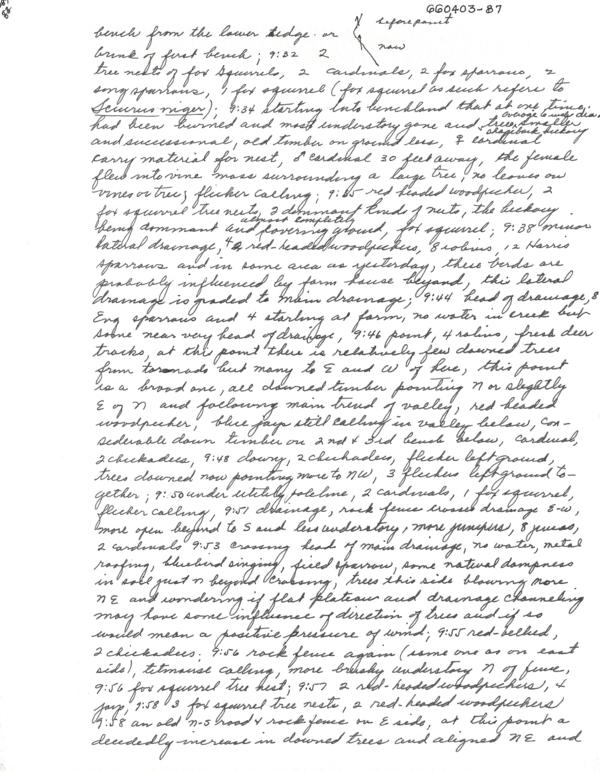 660403-87
before point
now
bench from the lower ledge or
brink of first bench; 9:32 2
tree nests of fox squirrels, 2 cardinals, 2 fox sparrows, 2
song sparrows, 1 fox squirrel (fox squirrel as such refers to
Sciurus niger); 9:34 starting into benchland that at one time
average to wide dia.
had been burned and most understory gone and trees smaller
& shagbark hickory
and successional, old timber on ground less, ♀ cardinal
carry material for nest, ♂ cardinal 30 feet away, the female
flew into vine mass surrounding a large tree, no leaves on
vines or tree; flicker calling; 9:35 red headed woodpecker, 2
fox squirrel tree nests, 2 dominant kinds of nuts, the hickory
almost completely
being dominant and covering ground, fox squirrel; 9:38 minor
lateral drainage, 4 red-headed woodpeckers, 8 robins, 12 Harris
sparrows and in same area as yesterday, these birds are
probably influenced by farm house beyond, this lateral
drainage is graded to main drainage; 9:44 head of drainage, 8
Eng sparrows and 4 starling at farm, no water in creek but
some near very head of drainage, 9:46 point, 4 robins, fresh deer
tracks, at this point there is relatively few downed trees
from tornado but many to E and W of here, this point
is a broad one, all downed timber pointing N or slightly
E of N and following main trend of valley, red headed
woodpecker, blue jays still calling in valley below, con-
siderable down timber on 2nd & 3rd bench below, cardinal,
2 chickadees, 9:48 downy, 2 chickadees, flicker left ground,
trees downed now pointing more to NW, 3 flickers left ground to-
gether; 9:50 under utility pole line, 2 cardinals, 1 fox squirrel,
flicker calling, 9:51 drainage, rock fence crosses drainage E-W,
more open beyond to S and less understory, more junipers, 8 juncos,
2 cardinals 9:53 crossing head of main drainage, no water, metal
roofing, bluebird singing, field sparrow, some natural dampness
in soil just N beyond crossing, trees this side blowing more
NE and wondering if flat plateau and drainage channeling
may have some influence of direction of trees and if so
would mean a positive pressure of wind; 9:55 red-bellied,
2 chickadees; 9:56 rock fence again (same one as on east
side), titmouse calling, more brushy understory N of fence,
9:56 fox squirrel tree nest; 9:57 2 red-headed woodpeckers, 4
jays, 9:58 3 fox squirrel tree nests, 2 red-headed woodpeckers
9:58 an old N-S road & rock fence on E side, at this point a
decidedly increase in downed trees and aligned NE and